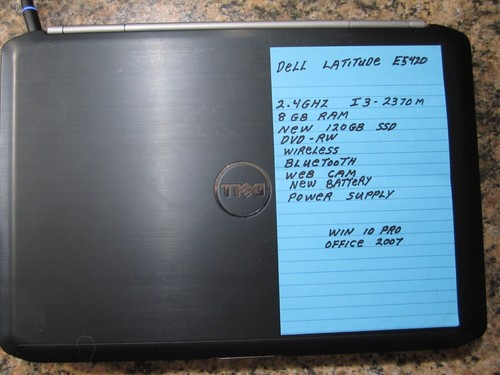 DELL LATITUDE E5420
2.4GHZ I3-2370M
8 GB RAM
NEW 120GB SSD
DVD-RW
WIRELESS
BLUETOOTH
WEB CAM
NEW BATTERY
POWER SUPPLY
WIN 10 PRO
OFFICE 2007
DELL